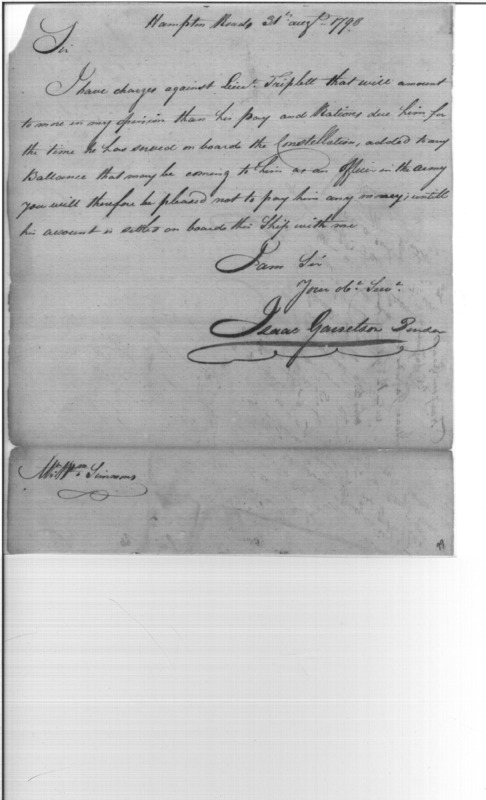 Hampton Roads 31st augt 1798
Sir
I have charges against Lieut. Triplett that will amount
to more in my opinion than his pay and Rations due him for
the time he has served on board the Constellation, added to any
Ballance that may be coming to him as an Officer in the army
you will therefore be pleased not to pay him any money, untill
his account is settled on board this Ship with me
I am Sir
Your obt. Servt.
Isaac Garretson Purser
Mr. Wm. Simmons